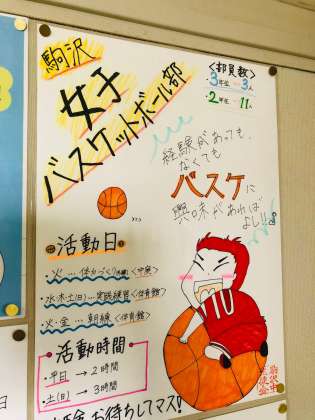 駒沢
女子
バスケットボール部
<部員数>
・3年位…3人
・2年生…11人
経験があっても、
なくても
バスケに
興味があれば
よし!!
活動日
・火…体力づくり(外練)<中庭>
・水・木・土(日)…実践練習<体育館>
・火・金…朝練<体育館>
活動時間
・平日→2時間
・土(日)→3時間
お待ちしてマス!